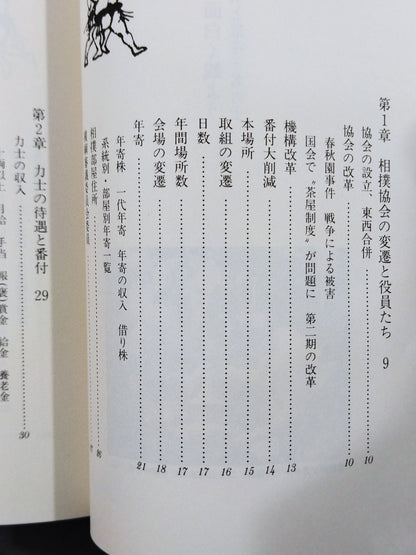 第1章 相撲協会の変遷と役員たち 9
協会の設立、東西合併 10
協会の改革 10
春秋園事件 戦争による被害
国会で〝茶屋制度〟が問題に 第二期の改革
機構改革 13
番付大削減 14
本場所 15
取組の変遷 16
日数 17
年間場所数 17
会場の変遷 18
年寄 21
年寄株 一代年寄 年寄の収入 借り株
系統別・部屋別年寄一覧
相撲部屋住所
第2章 力士の待遇と番付 29
力士の収入 30
十両以上 月給 手当 報(褒)賞金 給金 養老金